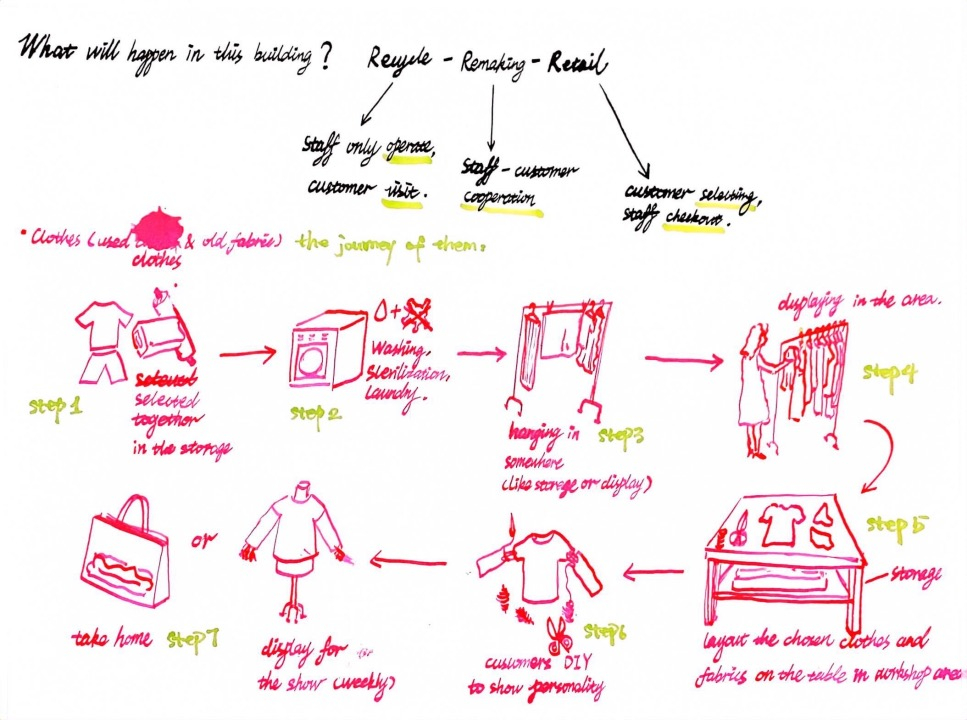 What will happen in this building? Recycle - Remaking - Retail
Staff only operate,
customer visit.
Staff - customer
cooperation
customer selecting,
staff checkout.
• Clothes (used & old fabric) the journey of them:
clothes
step 1
selected
together
in the storage
step 2
Washing,
Sterilization,
Laundry.
hanging in step3
somewhere
(like storage or display)
displaying in the area.
step 4
step 5
storage
layout the chosen clothes and
fabrics on the table in workshop area
step6
customers DIY
to show personality
display for
the show (weekly)
or
take home step 7